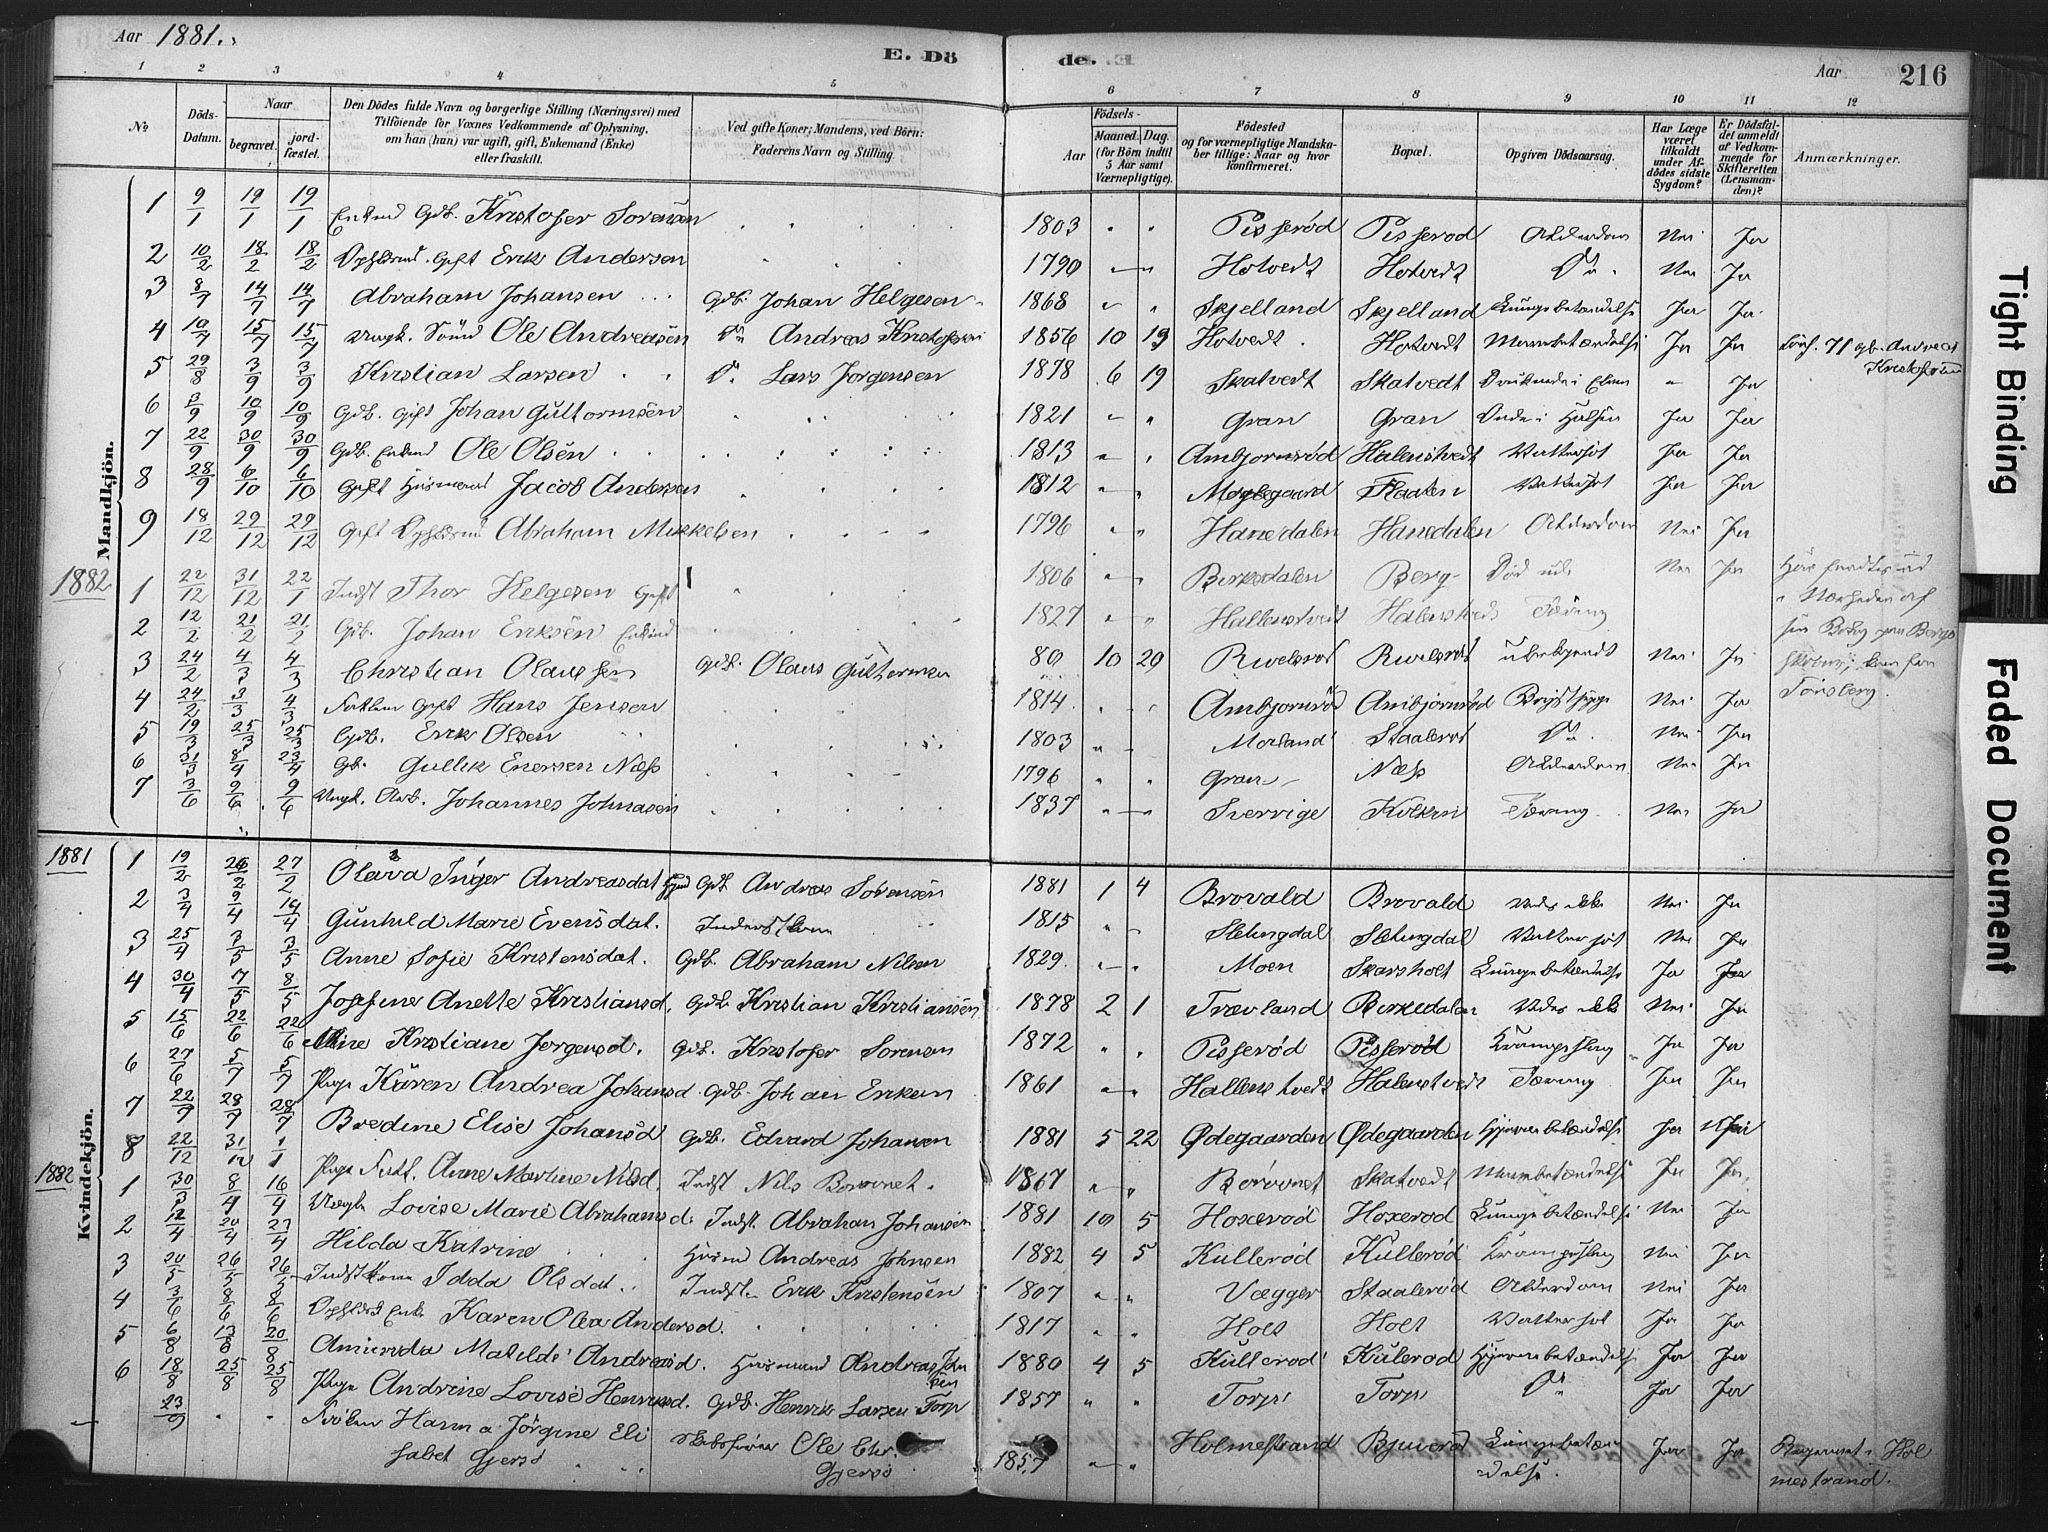 Aar 1881.
E. Dö
de.
Aar
216
1 2 3 4 5 6 7 8 9 10 11 12
No
Döds-Datum.
Naar
begravet.
jord-fæstet.
Den Dödes fulde Navn og borgerlige Stilling (Næringsvei) med
Tilföiende for Voxnes Vedkommende af Oplysning,
om han (hun) var ugift, gift, Enkemand (Enke)
eller fraskilt.
Ved gifte Koner; Mandens, ved Börn:
Faderens Navn og Stilling.
Födsels-
Aar
Maaned. Dag.
(for Börn indtil
5 Aar samt
Værnepligtige).
Födested
og for værnepligtige Mandska-
ber tillige: Naar og hvor
konfirmeret.
Bopæl.
Opgiven Dödsaarsag.
Har Læge
været
tilkaldt
under Af-
dödes sidste
Sygdom?
Er Dödsfal-
det anmeldt
af Vedkom-
mende for
Skifteretten
(Lensman-
den)?
Anmærkninger.
Mandkjön.
1 9/1 19/1 19/1 Gdb. Kristofer Sorensen 1803 Pisserød Pisserod Alderdom Nei Ja
2 10/2 18/2 18/2 Gift Erik Andersen 1790 Hotvedt Hotvedt Do Nei Ja
3 8/7 14/7 14/7 Abraham Johansen Gdb. Johan Helgesen 1868 Skjelland Skjelland Lungebetændelse Ja Ja
4 10/7 15/7 15/7 Ungk. Ole Andreasen Do Andreas Kristofersen 1856 10 19 Hotvedt Hotvedt Ja Ja 71 gb. Andreas
Kristofersen
5 29/8 3/9 3/9 Kristian Larsen Do Lars Jorgensen 1878 6 19 Skatvedt Skatvedt Ja
6 3/9 10/9 10/9 Gdb. gift Johan Guttormsen 1821 Gran Gran Onde i Halsen Ja Ja
7 22/9 30/9 30/9 Gdb. Ole Olsen 1813 Ambjornrød Halenstvedt Vattersot Ja Ja
8 28/9 6/10 6/10 Gift Husmand Jacob Andersen 1812 Flaaten Vattersot Ja Ja
9 18/12 29/12 29/12 Gift Abraham Mikkelsen 1796 Hanedalen Hanedalen Alderdom Nei Ja
1882
1 22/12 31/12 22/1 Indst Thor Helgesen Gift 1806 Birkedalen Berg Død ude Nei Ja
i Nærheden af
Tönsberg.
2 12/2 21/2 21/2 Gdb. Johan Eriksen 1827 Hallenstvedt Halenstvedt Tæring
3 24/2 4/3 4/3 Christian Olaussen Gdb. Olaus Guttormsen 80 10 20 ubekjendt Nei Ja
4 24/2 3/3 4/3 gift Hans Jensen 1814 Ambjornrod Ambjornrød Brystsyge Nei Ja
5 19/3 25/3 25/3 Gdb. Erik Olsen 1803 Morland Staalerød Do Nei Ja
6 31/3 8/4 23/4 Gb. Gullik Enersen Næss 1796 Gran Næss Alderdom Nei Ja
7 3/6 9/6 9/6 Ungk. Arb. Johannes Johnasen 1837 Sverrige Tæring Nei Ja
Kvindekjön.
1881
1 19/2 26/2 27/2 Olava Inger Andreasdat Gdb Andreas Sorensen 1881 1 4 Brovald Brovald Vides ikke Nei Ja
2 3/4 9/4 14/4 Gunhild Marie Evensdat. 1815 Slettingdal Slettingdal Vattersot Nei Ja
3 25/4 3/5 3/5 Anne Sofie Kristensdat. Gdb. Abraham Nilsen 1829 Moen Skarsholt Lungebetændelse Ja Ja
4 30/4 7/5 8/5 Josefine Anette Kristiansd. Gdb. Kristian Kristiansen 1878 2 1 Trævland Birkedalen Vides ikke Nei Ja
5 15/6 22/6 22/6 Kristiane Jorgensd. Gdb. Kristofer Sorensen 1872 Pisserød Pisserød Krampeslag Ja Ja
6 27/6 5/7 5/7 Pige Karen Andrea Johansd. Gdb. Johan Eriksen 1861 Hallenstvedt Halenstvedt Tæring Ja Ja
7 22/9 28/7 28/7 Bredine Elise Johansd Gdb. Edvard Johansen 1881 5 22 Ødegaarden Ødegaarden Hjernebetændelse Ja
8 22/12 31/12 1/1 Pige Anne Martine Nilsd. Indst Nils 1867 Skatvedt Ja Ja
1882
1 30/3 8/4 16/4 Lovise Marie Abrahamsd. Indst. Abraham Johansen 1881 10 5 Hoxerod Hoxerod Lungebetændelse Nei Ja
2 12/4 20/4 27/4 Hilda Katrine Husmd Andreas Johnsen 1882 4 5 Kullerød Kullerød Krampeslag Nei Ja
3 20/5 26/5 26/5 Indstkone Idda Olsdat. Indst. Erik Kristensen 1807 Vegger Staalerød Alderdom Nei Ja
4 3/6 8/6 8/6 Enke Karen Olea Andersd. 1817 Holt Holt Vattersot Ja Ja
5 6/8 13/8 20/8 Amienda Matilde Andreasd. Husmand Andreas John
sen 1880 4 5 Kullerod Kulerod Hjernebetændelse Ja Ja
6 18/8 25/8 25/8 Pige Andrine Lovise Henriksd. Gdb. Henrik Larsen Torp 1857 Torp Torp Do Ja Ja
23/9 Frøken Hanna Jörgine Eli
sabet Gjersö Skibsfører Ole Chr.
Gjersö 1857 Holmestrand Bjuerød Lungebetæn
delse. Ja Ja Begravet i Hol
mestrand.
Tight Binding
Faded Document